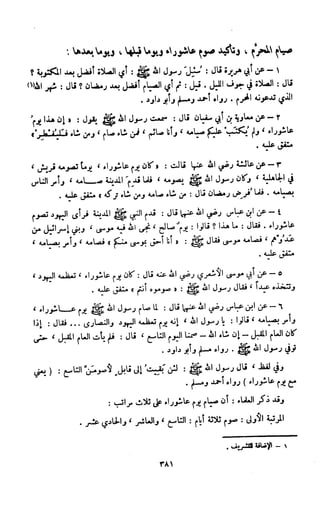 صيام المحرم ، وتأكيد صوم عاشوراء ويوما قبلها ، ويوما بعدها :
١ – عن أبي هريرة قال : سئل رسول الله ﷺ : أي الصلاة أفضل بعد المكتوبة ؟
قال : الصلاة في جوف الليل . قيل : ثم أي الصيام أفضل بعد رمضان ؟ قال : شهر الله(١)
الذي تدعونه المحرم . رواه أحمد ومسلم وأبو داود .
٢ – عن معاوية بن أبي سفيان قال : سمعت رسول الله ﷺ يقول : « إن هذا يوم
عاشوراء ، ولم يكتب عليكم صيامه ، وأنا صائم ، فمن شاء صام ، ومن شاء فليفطر »
متفق عليه .
٣ – عن عائشة رضي الله عنها قالت : « كان يوم عاشوراء ، يوماً تصومه قريش ،
في الجاهلية ، وكان رسول الله ﷺ يصومه ، فلما قدم المدينة صامه ، وأمر الناس
بصيامه . فلما فرض رمضان قال : من شاء صامه ومن شاء تركه » متفق عليه .
٤ – عن ابن عباس رضي الله عنهما قال : قدم النبي ﷺ المدينة فرأى اليهود تصوم
عاشوراء . فقال : ما هذا ؟ قالوا : يوم صالح ، نجى الله فيه موسى ، وبني إسرائيل من
عدوهم ، فصامه موسى فقال ﷺ : « أنا أحق بموسى منكم » فصامه ، وأمر بصيامه ،
متفق عليه .
٥ – عن أبي موسى الأشعري رضي الله عنه قال : كان يوم عاشوراء ، تعظمه اليهود ،
وتتخذه عيداً ، فقال رسول الله ﷺ : « صوموه أنتم » متفق عليه .
٦ – عن ابن عباس رضي الله عنهما قال : لما صام رسول الله ﷺ يوم عاشوراء ،
وأمر بصيامه ، قالوا : يا رسول الله ، إنه يوم تعظمه اليهود والنصارى ... فقال : إذا
كان العام المقبل – إن شاء الله – صمنا اليوم التاسع ، قال : فلم يأت العام المقبل ، حتى
توفي رسول الله ﷺ . رواه مسلم وأبو داود .
وفي لفظ ، قال رسول الله ﷺ : لئن بقيت إلى قابل لأصومن التاسع : ( يعني
مع يوم عاشوراء ) رواه أحمد ومسلم .
وقد ذكر العلماء : أن صيام يوم عاشوراء على ثلاث مراتب :
المرتبة الأولى : صوم ثلاثة أيام : التاسع ، والعاشر ، والحادي عشر .
١ – الإضافة للتشريف .
٣٨١